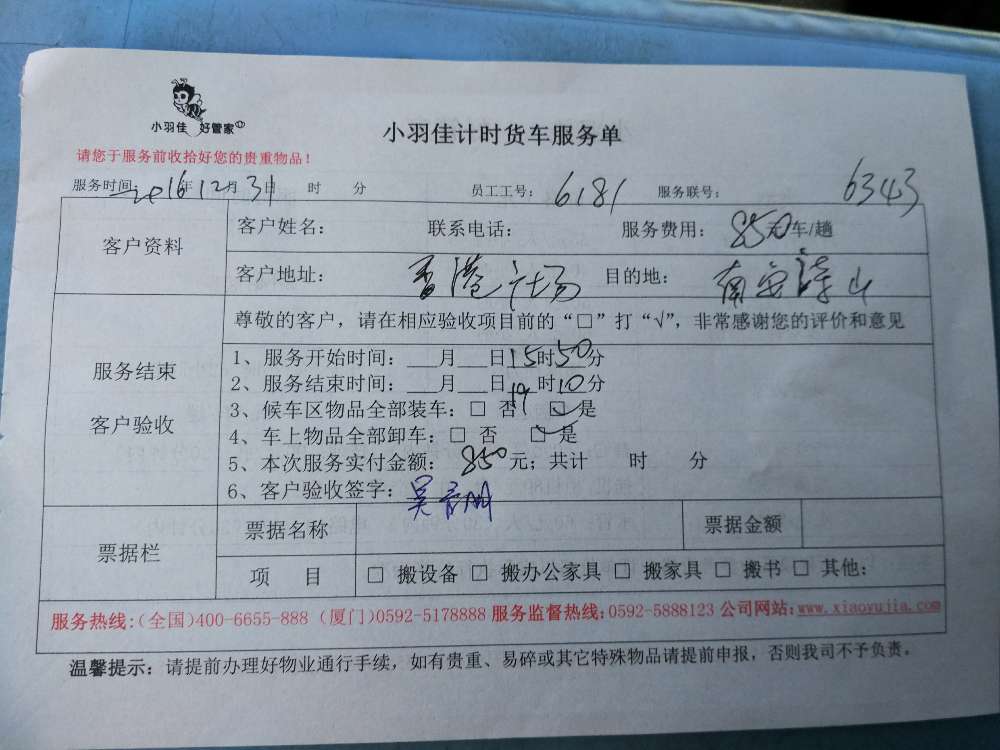 小羽佳 好管家
小羽佳计时货车服务单
请您于服务前收拾好您的贵重物品！
服务时间：2016年12月31日 时 分 员工工号：6181 服务联号：6343
客户资料
客户姓名： 联系电话： 服务费用：850元车/趟
客户地址：香港广场 目的地：南安诗山
服务结束
客户验收
尊敬的客户，请在相应验收项目前的“□”打“√”，非常感谢您的评价和意见
1、服务开始时间：___月___日15时50分
2、服务结束时间：___月___日19时10分
3、候车区物品全部装车：□ 否 □ 是
4、车上物品全部卸车：□ 否 □ 是
5、本次服务实付金额：850元；共计 时 分
6、客户验收签字：吴
票据栏
票据名称 票据金额
项 目 □ 搬设备 □ 搬办公家具 □ 搬家具 □ 搬书 □ 其他：
服务热线:(全国)400-6655-888 (厦门)0592-5178888 服务监督热线:0592-5888123 公司网站:www.xiaoyujia.com
温馨提示：请提前办理好物业通行手续，如有贵重、易碎或其它特殊物品请提前申报，否则我司不予负责。